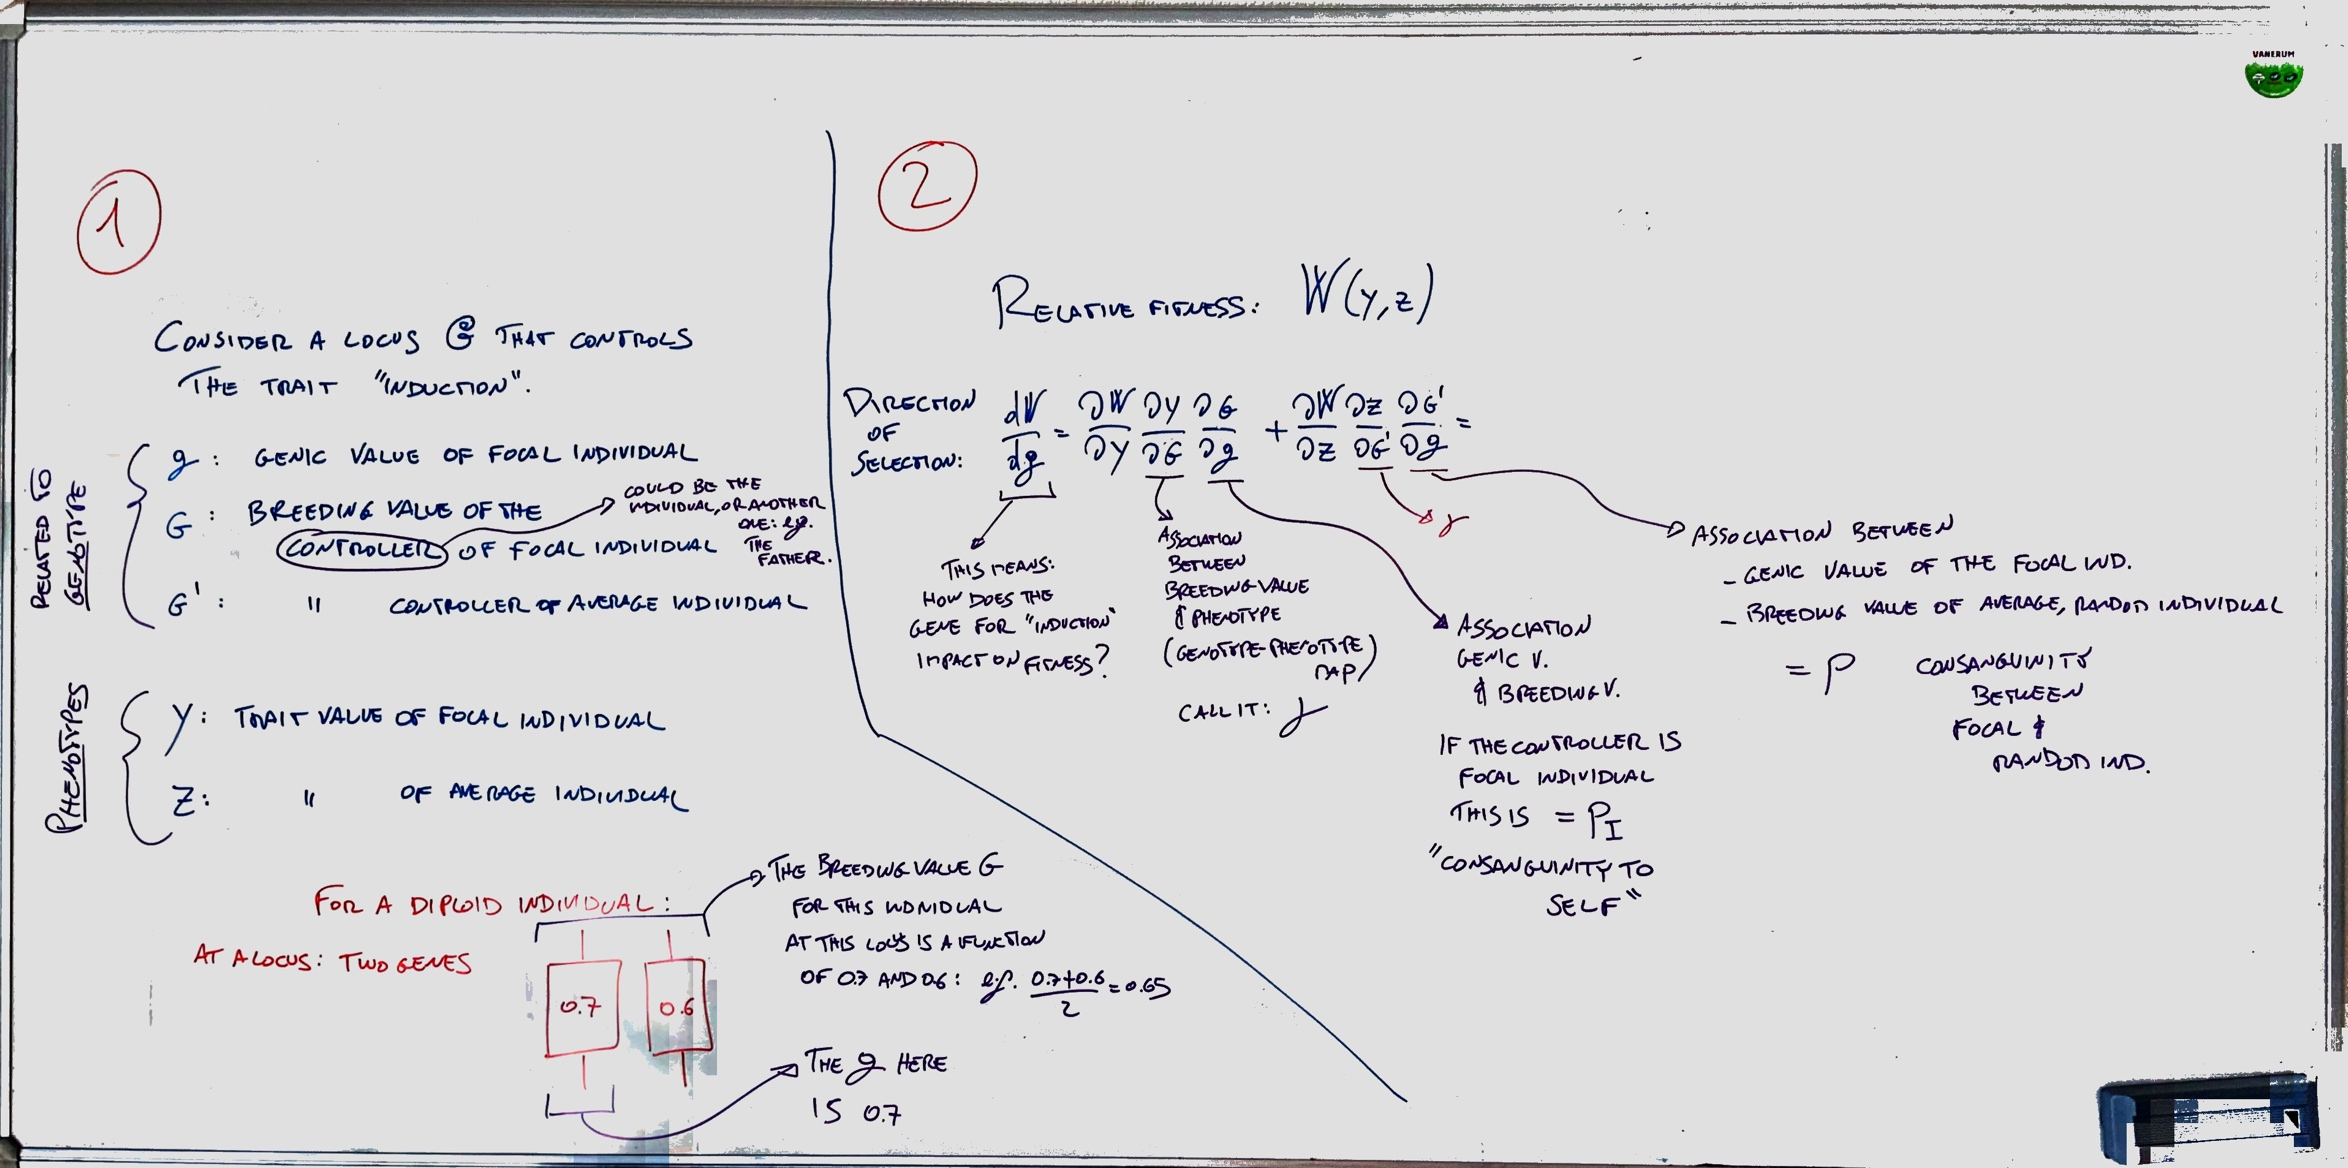 VANERUM
1
CONSIDER A LOCUS G THAT CONTROLS
THE TRAIT "INDUCTION".
RELATED TO
GENOTYPE
g: GENIC VALUE OF FOCAL INDIVIDUAL
G: BREEDING VALUE OF THE
CONTROLLER OF FOCAL INDIVIDUAL
COULD BE THE
INDIVIDUAL, OR ANOTHER
ONE: e.g.
THE
FATHER.
G': " CONTROLLER OF AVERAGE INDIVIDUAL
PHENOTYPES
Y: TRAIT VALUE OF FOCAL INDIVIDUAL
Z: " OF AVERAGE INDIVIDUAL
FOR A DIPLOID INDIVIDUAL:
AT A LOCUS: TWO GENES
0.7 0.6
THE BREEDING VALUE G
FOR THIS INDIVIDUAL
AT THIS LOCUS IS A FUNCTION
OF 0.7 AND 0.6: e.g. (0.7+0.6)/2 = 0.65
THE g HERE
IS 0.7
2
RELATIVE FITNESS: W(Y,Z)
DIRECTION
OF
SELECTION:
dW/dg = ∂W/∂Y ∂Y/∂G ∂G/∂g + ∂W/∂Z ∂Z/∂G' ∂G'/∂g =
THIS MEANS:
HOW DOES THE
GENE FOR "INDUCTION"
IMPACT ON FITNESS?
ASSOCIATION
BETWEEN
BREEDING VALUE
& PHENOTYPE
(GENOTYPE-PHENOTYPE)
MAP)
CALL IT: γ
ASSOCIATION
GENIC V.
& BREEDING V.
IF THE CONTROLLER IS
FOCAL INDIVIDUAL
THIS IS = P_I
"CONSANGUINITY TO
SELF"
γ
ASSOCIATION BETWEEN
- GENIC VALUE OF THE FOCAL IND.
- BREEDING VALUE OF AVERAGE, RANDOM INDIVIDUAL
= P CONSANGUINITY
BETWEEN
FOCAL &
RANDOM IND.